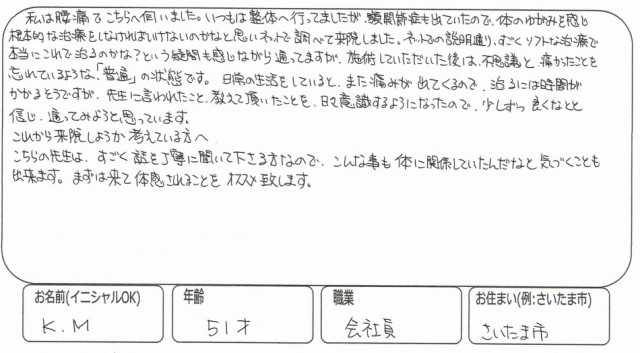 私は腰痛でこちらへ伺いました。いつもは整体へ行ってましたが、顎関節症も出ていたので、体のゆがみを感じ
根本的な治療をしなければいけないのかなと思いネットで調べて来院しました。ネットでの説明通り、すごくソフトな治療で
本当にこれで治るのかな？という疑問も感じながら通ってますが、施術していただいた後は、不思議と、痛かったことを
忘れているような、「普通」の状態です。日常の生活をしていると、また痛みが出てくるので、治るには時間が
かかるそうですが、先生に言われたこと、教えて頂いたことを、日々意識するようになったので、少しずつ良くなると
信じ、通ってみようと思っています。
これから来院しようか考えている方へ
こちらの先生は、すごく話を丁寧に聞いて下さる方なので、こんな事も体に関係していたんだなと気づくことも
出来ます。まずは来て体感されることをオススメ致します。
お名前(イニシャルOK) 年齢 職業 お住まい(例:さいたま市)
K.M 51才 会社員 さいたま市